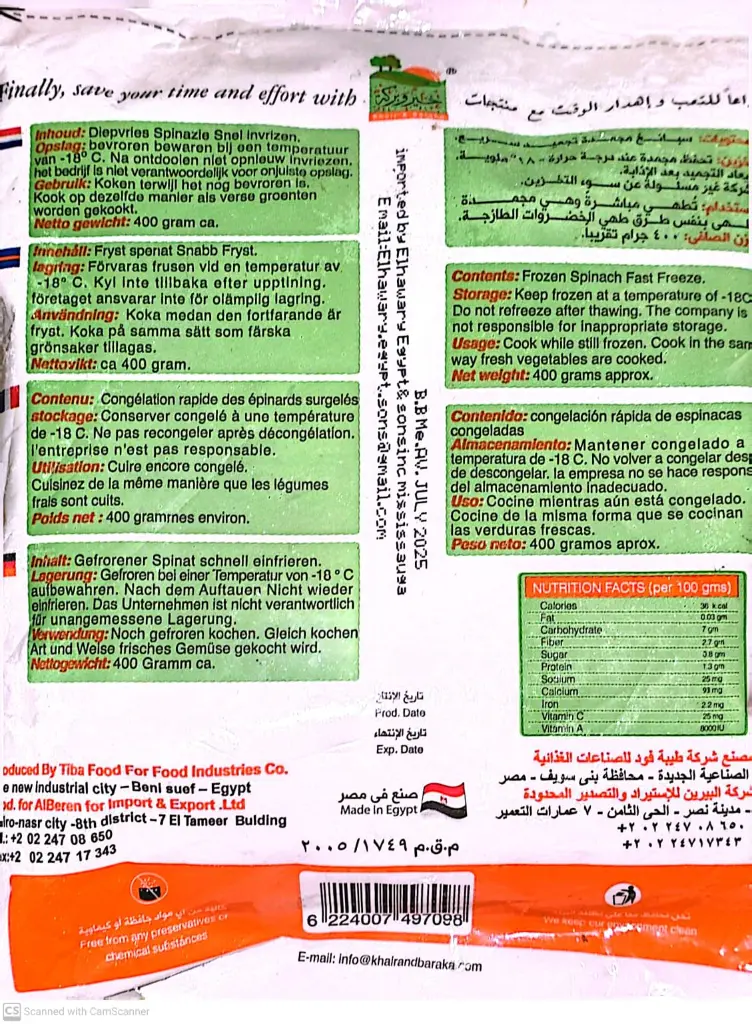 Finally, save your time and effort with
خير وبركة
Khair & Baraka
®
للتعب و إهدار الوقت مع منتجات
Inhoud: Diepvries Spinazie Snel invrizen.
Opslag: bevroren bewaren bij een temperatuur
van -18° C. Na ontdooien niet opnieuw invriezen.
het bedrijf is niet verantwoordelijk voor onjuiste opslag.
Gebruik: Koken terwijl het nog bevroren is.
Kook op dezelfde manier als verse groenten
worden gekookt.
Netto gewicht: 400 gram ca.
Innehåll: Fryst spenat Snabb Fryst.
lagring: Förvaras frusen vid en temperatur av
-18° C. Kyl inte tillbaka efter upptining.
företaget ansvarar inte för olämplig lagring.
Användning: Koka medan den fortfarande är
fryst. Koka på samma sätt som färska
grönsaker tillagas.
Nettovikt: ca 400 gram.
Contenu: Congélation rapide des épinards surgelés
stockage: Conserver congelé à une température
de -18 C. Ne pas recongeler après décongélation.
l'entreprise n'est pas responsable.
Utilisation: Cuire encore congelé.
Cuisinez de la même manière que les légumes
frais sont cuits.
Poids net : 400 grammes environ.
Inhalt: Gefrorener Spinat schnell einfrieren.
Lagerung: Gefroren bei einer Temperatur von -18 ° C
aufbewahren. Nach dem Auftauen Nicht wieder
einfrieren. Das Unternehmen ist nicht verantwortlich
für unangemessene Lagerung.
Verwendung: Noch gefroren kochen. Gleich kochen
Art und Weise frisches Gemüse gekocht wird.
Nettogewicht: 400 Gramm ca.
imported by Elhawary Egypt & sons inc mississauga
Email:Elhawary.egypt.sons@gmail.com
B.B Me.AV. JULY 2025
سبانخ مجمدة تجميد سريع.
تحفظ مجمدة عند درجة حرارة -١٨° مئوية.
التجميد بعد الإذابة.
غير مسئولة عن سوء التخزين.
تطهى مباشرة وهي مجمدة
بنفس طرق طهي الخضروات الطازجة.
الصافى: ٤٠٠ جرام تقريبا.
Contents: Frozen Spinach Fast Freeze.
Storage: Keep frozen at a temperature of -18C
Do not refreeze after thawing. The company is
not responsible for inappropriate storage.
Usage: Cook while still frozen. Cook in the sam
way fresh vegetables are cooked.
Net weight: 400 grams approx.
Contenido: congelación rápida de espinacas
congeladas
Almacenamiento: Mantener congelado a
temperatura de -18 C. No volver a congelar des
de descongelar. la empresa no se hace respons
del almacenamiento inadecuado.
Uso: Cocine mientras aún está congelado.
Cocine de la misma forma que se cocinan
las verduras frescas.
Peso neto: 400 gramos aprox.
NUTRITION FACTS (per 100 gms)
Calories 36 kcal
Fat 0.03 gm
Carbohydrate 7 gm
Fiber 2.7 gm
Sugar 3.8 gm
Protein 1.3 gm
Sodium 25 mg
Calcium 93 mg
Iron 2.2 mg
Vitamin C 25 mg
Vitamin A 8000IU
تاريخ الإنتاج
Prod. Date
تاريخ الإنتهاء
Exp. Date
صنع فى مصر
Made in Egypt
م.ق.م ١٧٤٩/ ٢٠٠٥
oduced By Tiba Food For Food Industries Co.
e new industrial city – Beni suef – Egypt
od. for AlBeren for Import & Export .Ltd
iro-nasr city -8th district –7 El Tameer Bulding
l.: +2 02 247 08 650
ax:+2 02 247 17 343
مصنع شركة طيبة فود للصناعات الغذائية
الصناعية الجديدة - محافظة بنى سويف - مصر
شركة البيرين للإستيراد والتصدير المحدودة
- مدينة نصر - الحى الثامن - ٧ عمارات التعمير
+٢ ٠٢ ٢٤٧ ٠٨ ٦٥٠
+٢ ٠٢ ٢٤٧١٧٣٤٣
من أي مواد حافظة أو كيماوية
Free from any preservatives or
chemical substances
We keep our environment clean
6 224007 497098
E-mail: info@khairandbaraka.com
CS Scanned with CamScanner